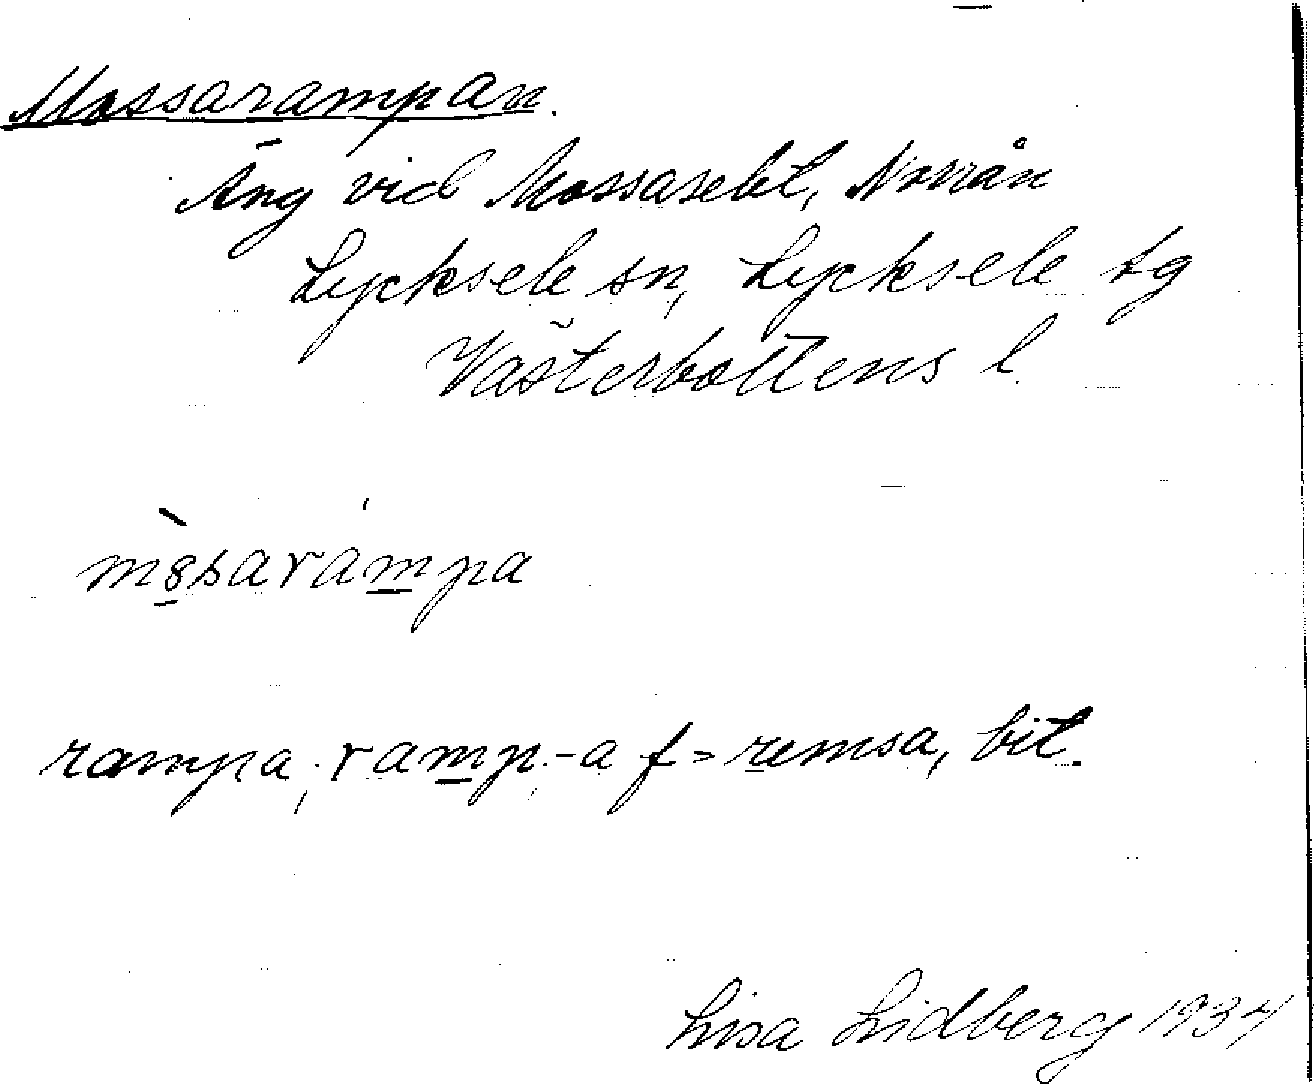 Mossarampan.
Äng vid Mossaselet, Norrån
Lycksele sn, Lycksele tg
Västerbottens l.
mòsaràmpa
rampa, ramp.-a f = remsa, bit.
Lisa Lidberg 1934